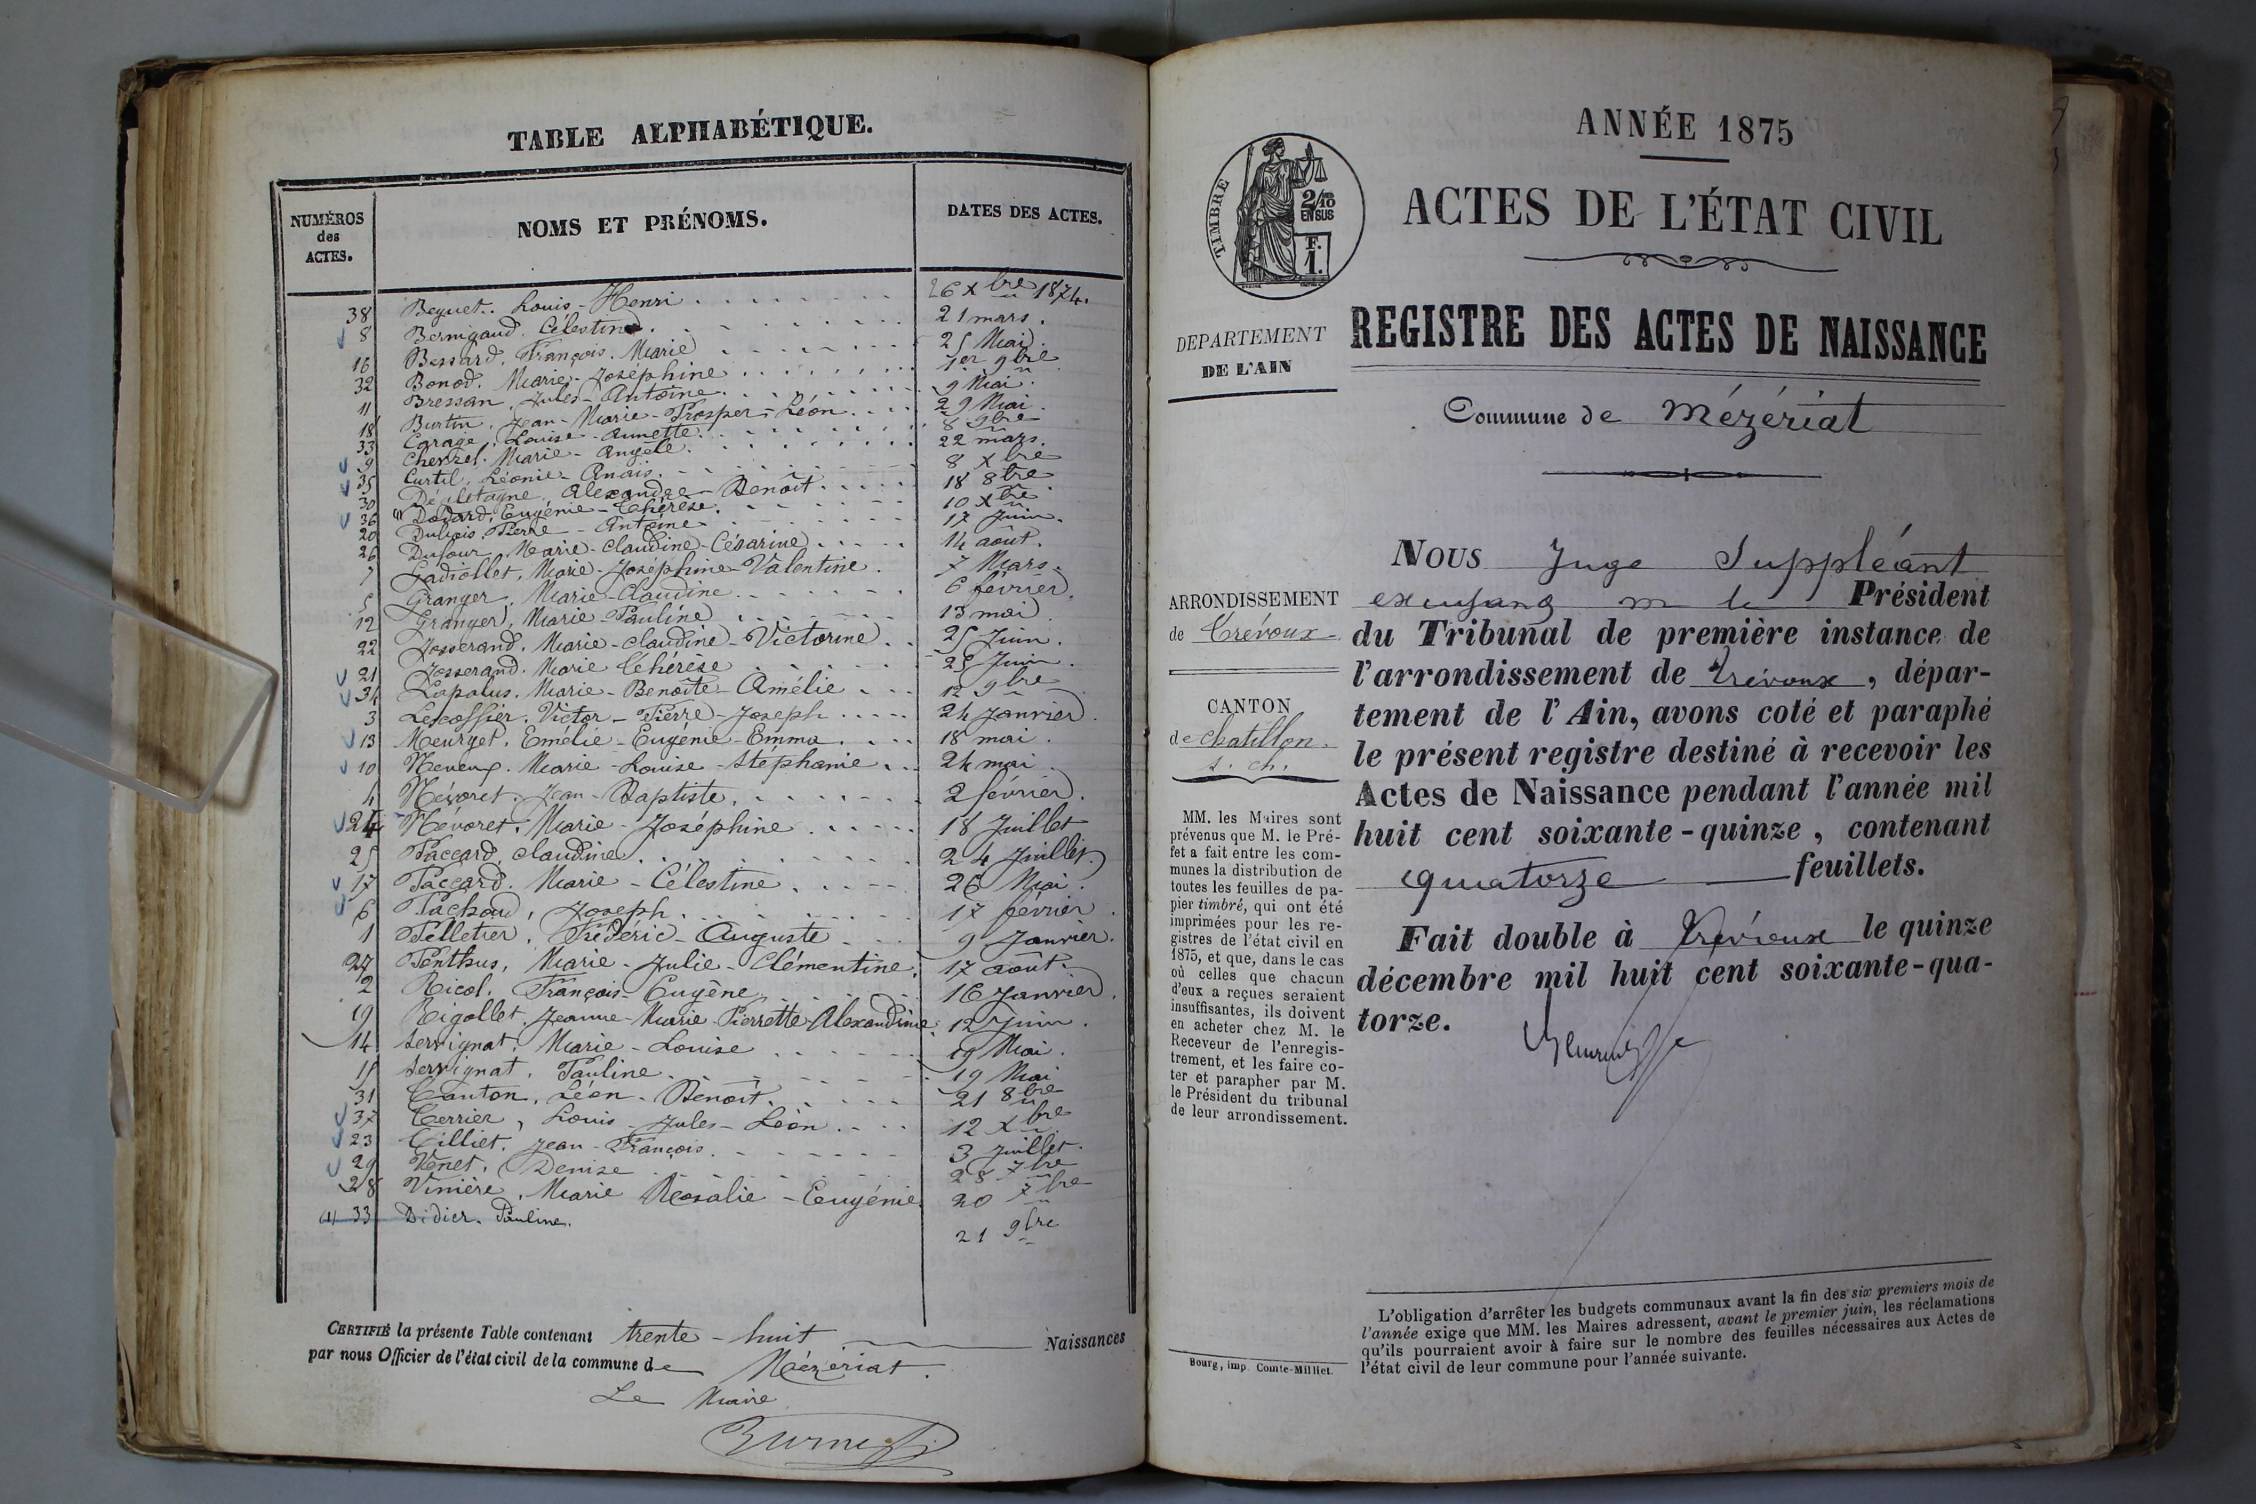 TABLE ALPHABÉTIQUE.
NUMÉROS des ACTES. NOMS ET PRÉNOMS. DATES DES ACTES.
38 Beguet. Louis-Henri 26 Xbre 1874.
8 Bernigaud. Célestine. 21 mars.
16 Bessard. François. Marie 25 Mai.
32 Bonod. Marie-Joséphine 1er 9bre
11 Bressan, Jules-Antoine. 9 Mai.
18 Burtin, Jean-Marie-Prosper-Léon. 29 Mai.
33 Carage, Louise-Annette. 8 9bre
9 Cherel. Marie-Angèle. 22 mars.
35 Curtil, Léonie-Anaïs. 8 Xbre
30 Alexandre-Benoît 18 8bre
36 (1) Dodard, Eugénie-Thérèse. 10 Xbre
20 Dubois Pierre-Antoine 17 Juin.
26 Dufour, Marie-Claudine-Césarine 14 août.
7 Gadiollet, Marie-Joséphine-Valentine. 7 Mars.
5 Granger, Marie-Claudine 6 février.
12 Granger, Marie-Pauline 13 mai
22 Josserand. Marie-Claudine-Victorine 25 Juin.
21 Josserand. Marie Thérèse 25 Juin.
34 Lapalus. Marie-Benoîte-Amélie 12 9bre
3 Lescoffier. Victor-Pierre-Joseph 24 Janvier.
13 Meurget. Emélie-Eugénie-Emma 18 mai.
10 Neveux. Marie-Louise-Stéphanie 24 mai
4 Névoret. Jean-Baptiste. 2 février.
24 Névoret. Marie-Joséphine 18 Juillet
25 Paccard, Claudine 24 Juillet.
17 Paccard. Marie-Célestine. 26 Mai.
6 Pachoud, Joseph. 17 février.
1 Pelletier, Fréderic-Auguste 9 Janvier.
27 Penthus, Marie-Julie-Clémentine. 17 août.
2 Ricol. François-Eugène 16 Janvier.
19 Rigollet. Jeanne-Marie-Pierrette-Alexandrine. 12 Juin.
14 Servignat. Marie-Louise 19 Mai.
15 Servignat. Pauline. 19 Mai
31 Tanton, Léon-Benoît. 21 8bre
37 Terrier, Louis-Jules-Léon 12 Xbre
23 Tilliet. Jean-François. 3 Juillet.
29 Venet. Denise 28 7bre
28 Vinière, Marie Rosalie-Eugénie 20 7bre
(1) 33 Didier. Pauline. 21 9bre
CERTIFIÉ la présente Table contenant trente-huit Naissances
par nous Officier de l'état civil de la commune de Mézériat.
Le Maire
ANNÉE 1875
TIMBRE
2/10 EN SUS
F. 1.
ACTES DE L'ÉTAT CIVIL
DEPARTEMENT
DE L'AIN
REGISTRE DES ACTES DE NAISSANCE
Commune de Mézériat
ARRONDISSEMENT
de Trévoux
CANTON
de Chatillon.
s. ch.
MM. les Maires sont
prévenus que M. le Pré-
fet a fait entre les com-
munes la distribution de
toutes les feuilles de pa-
pier timbré, qui ont été
imprimées pour les re-
gistres de l'état civil en
1875, et que, dans le cas
où celles que chacun
d'eux a reçues seraient
insuffisantes, ils doivent
en acheter chez M. le
Receveur de l'enregis-
trement, et les faire co-
ter et parapher par M.
le Président du tribunal
de leur arrondissement.
Nous Juge Suppléant
m le Président
du Tribunal de première instance de
l'arrondissement de Trévoux, dépar-
tement de l'Ain, avons coté et paraphé
le présent registre destiné à recevoir les
Actes de Naissance pendant l'année mil
huit cent soixante-quinze, contenant
quatorze feuillets.
Fait double à Trévoux le quinze
décembre mil huit cent soixante-qua-
torze.
L'obligation d'arrêter les budgets communaux avant la fin des six premiers mois de
l'année exige que MM. les Maires adressent, avant le premier juin, les réclamations
qu'ils pourraient avoir à faire sur le nombre des feuilles nécessaires aux Actes de
l'état civil de leur commune pour l'année suivante.
Bourg, imp. Comte-Milliet.